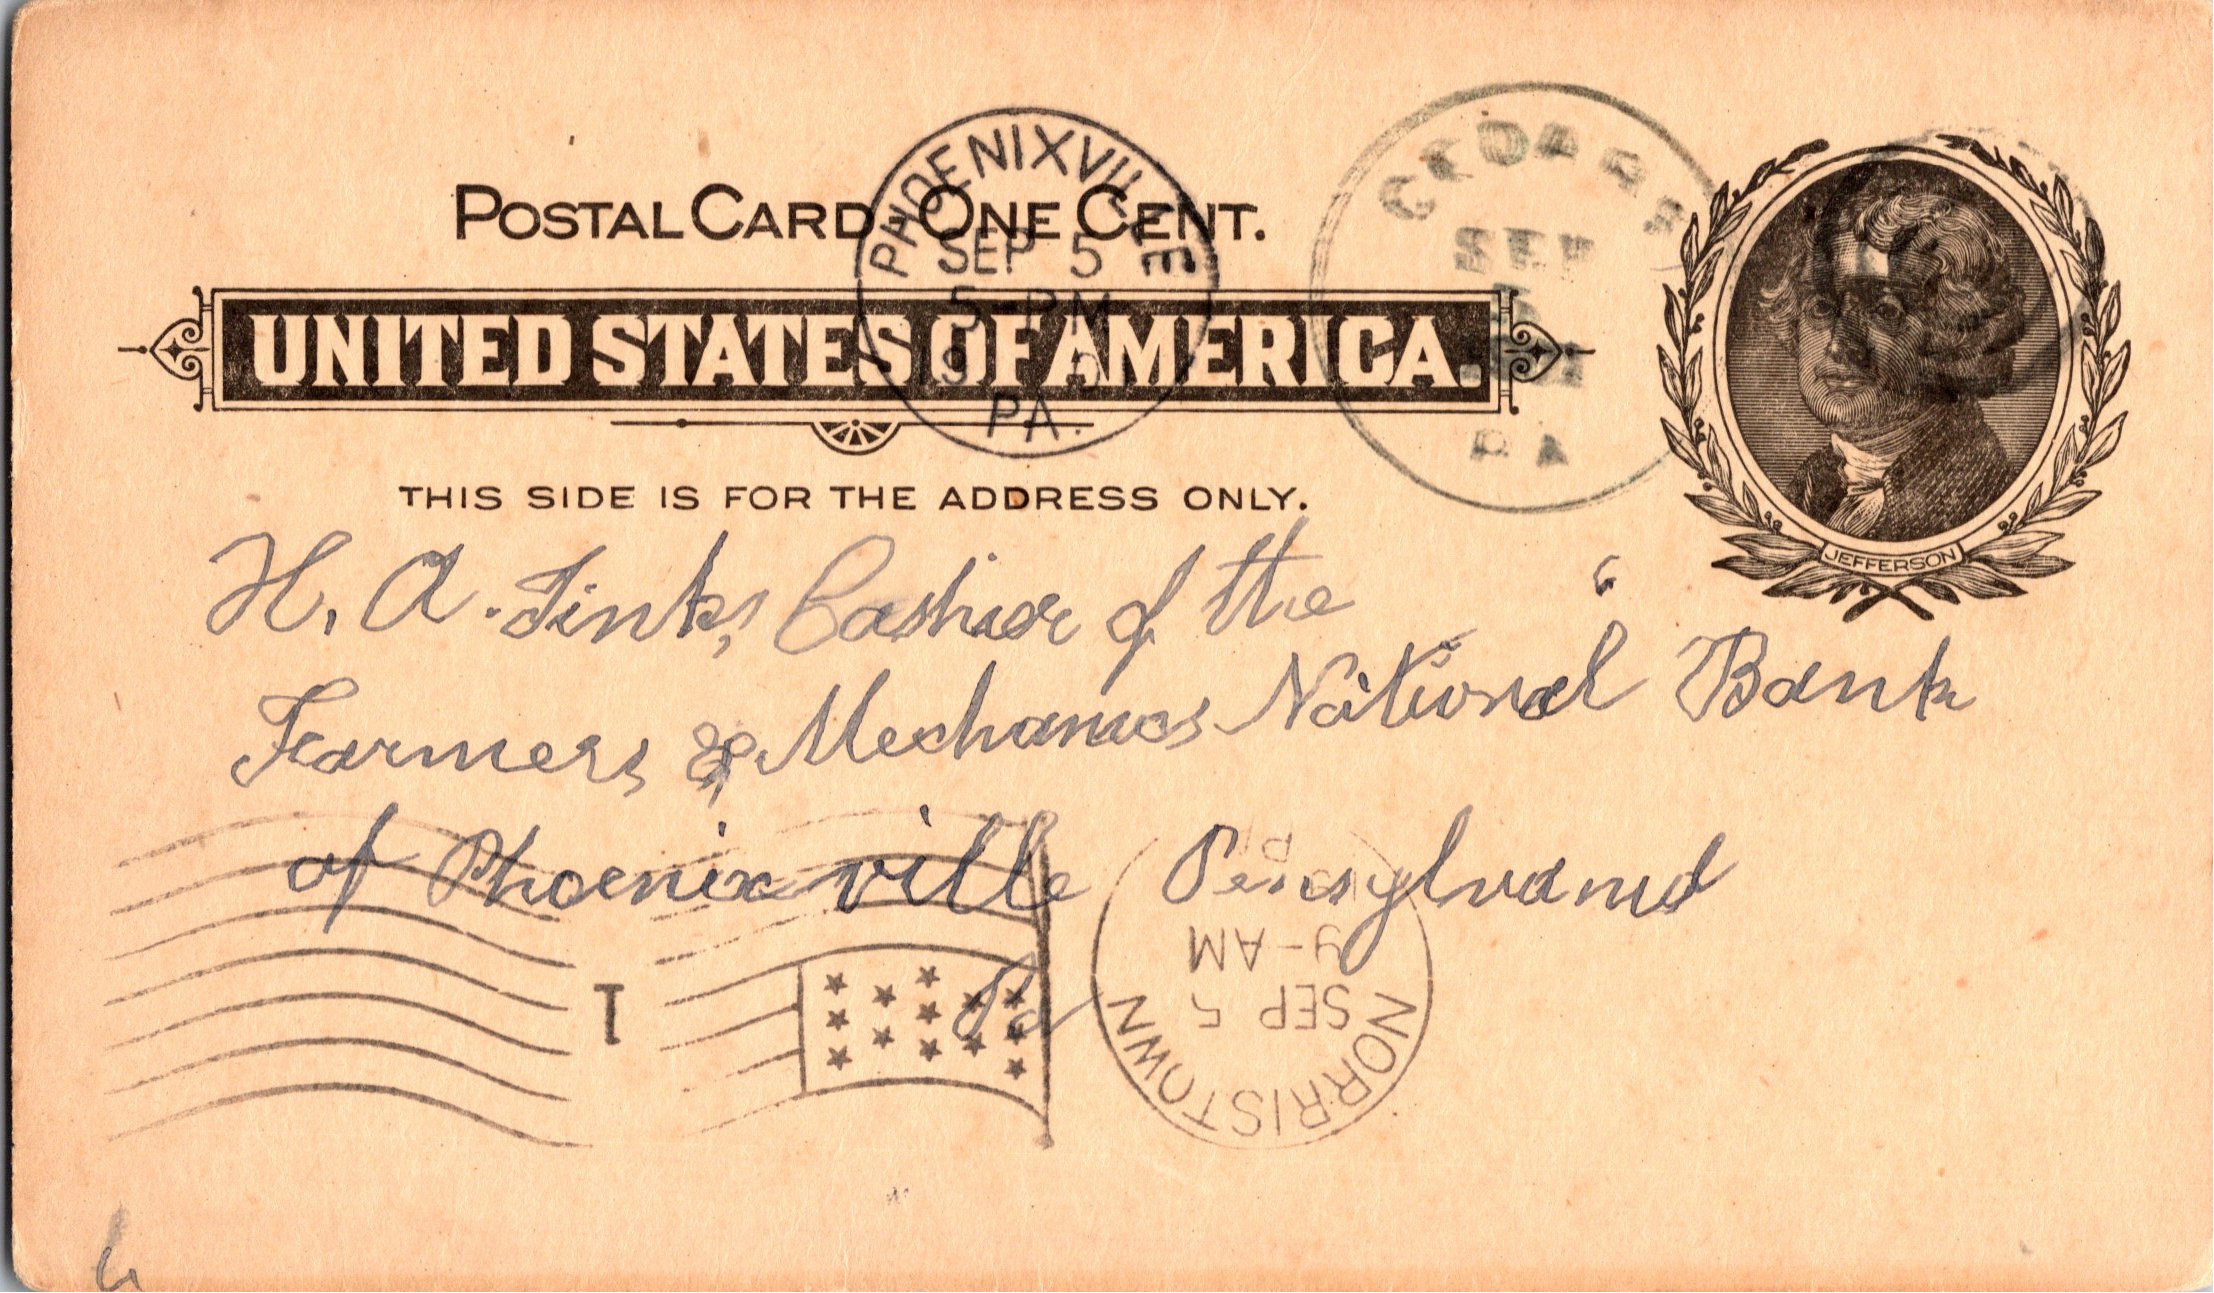 POSTAL CARD - ONE CENT.
UNITED STATES OF AMERICA.
THIS SIDE IS FOR THE ADDRESS ONLY.
JEFFERSON
PHOENIXVILLE
SEP 5
5-PM
PA.
SEP
PA
H. A. Jinks, Cashier of the
Farmers & Mechanics National Bank
of Phoenixville Pensylvania
Pa
1
NORRISTOWN
SEP 5
9-AM
PA